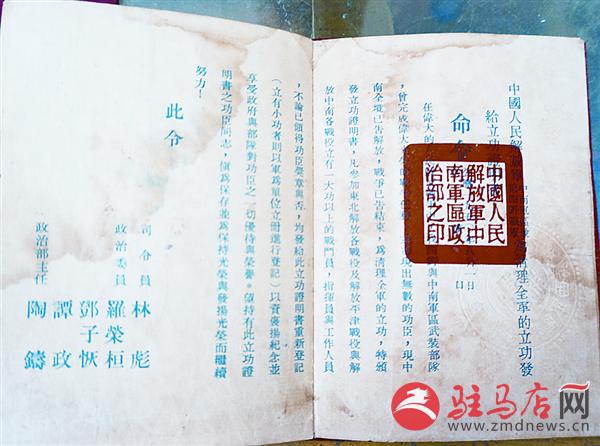 中國人民解放軍 清理全軍的立功發
給立功
命令
八月一日
在偉大的 與中南軍區武裝部隊
，曾完成偉大 現出無數的功臣，現中
南全境已告解放，戰爭已告結束，爲清理全軍的立功，特頒
發立功證明書，凡參加東北解放各戰役及解放平津戰役與解
放中南各戰役立有一大功以上的戰鬥員，指揮員與工作人員
中國人民
解放軍中
南軍區政
治部之印
，不論已領得功臣獎章與否，均發給此立功證明書重新登記
（立有小功者則以軍爲單位立冊進行登記）以資褒揚紀念並
享受政府與部隊對功臣之一切優待與榮譽。望持有此立功證
明書之功臣同志，値爲保存並爲保持光榮與發揚光榮而繼續
努力！
此令
司令員 林彪
政治委員 羅榮桓
鄧子恢
譚政
政治部主任 陶鑄
驻马店网
www.zmdnews.cn